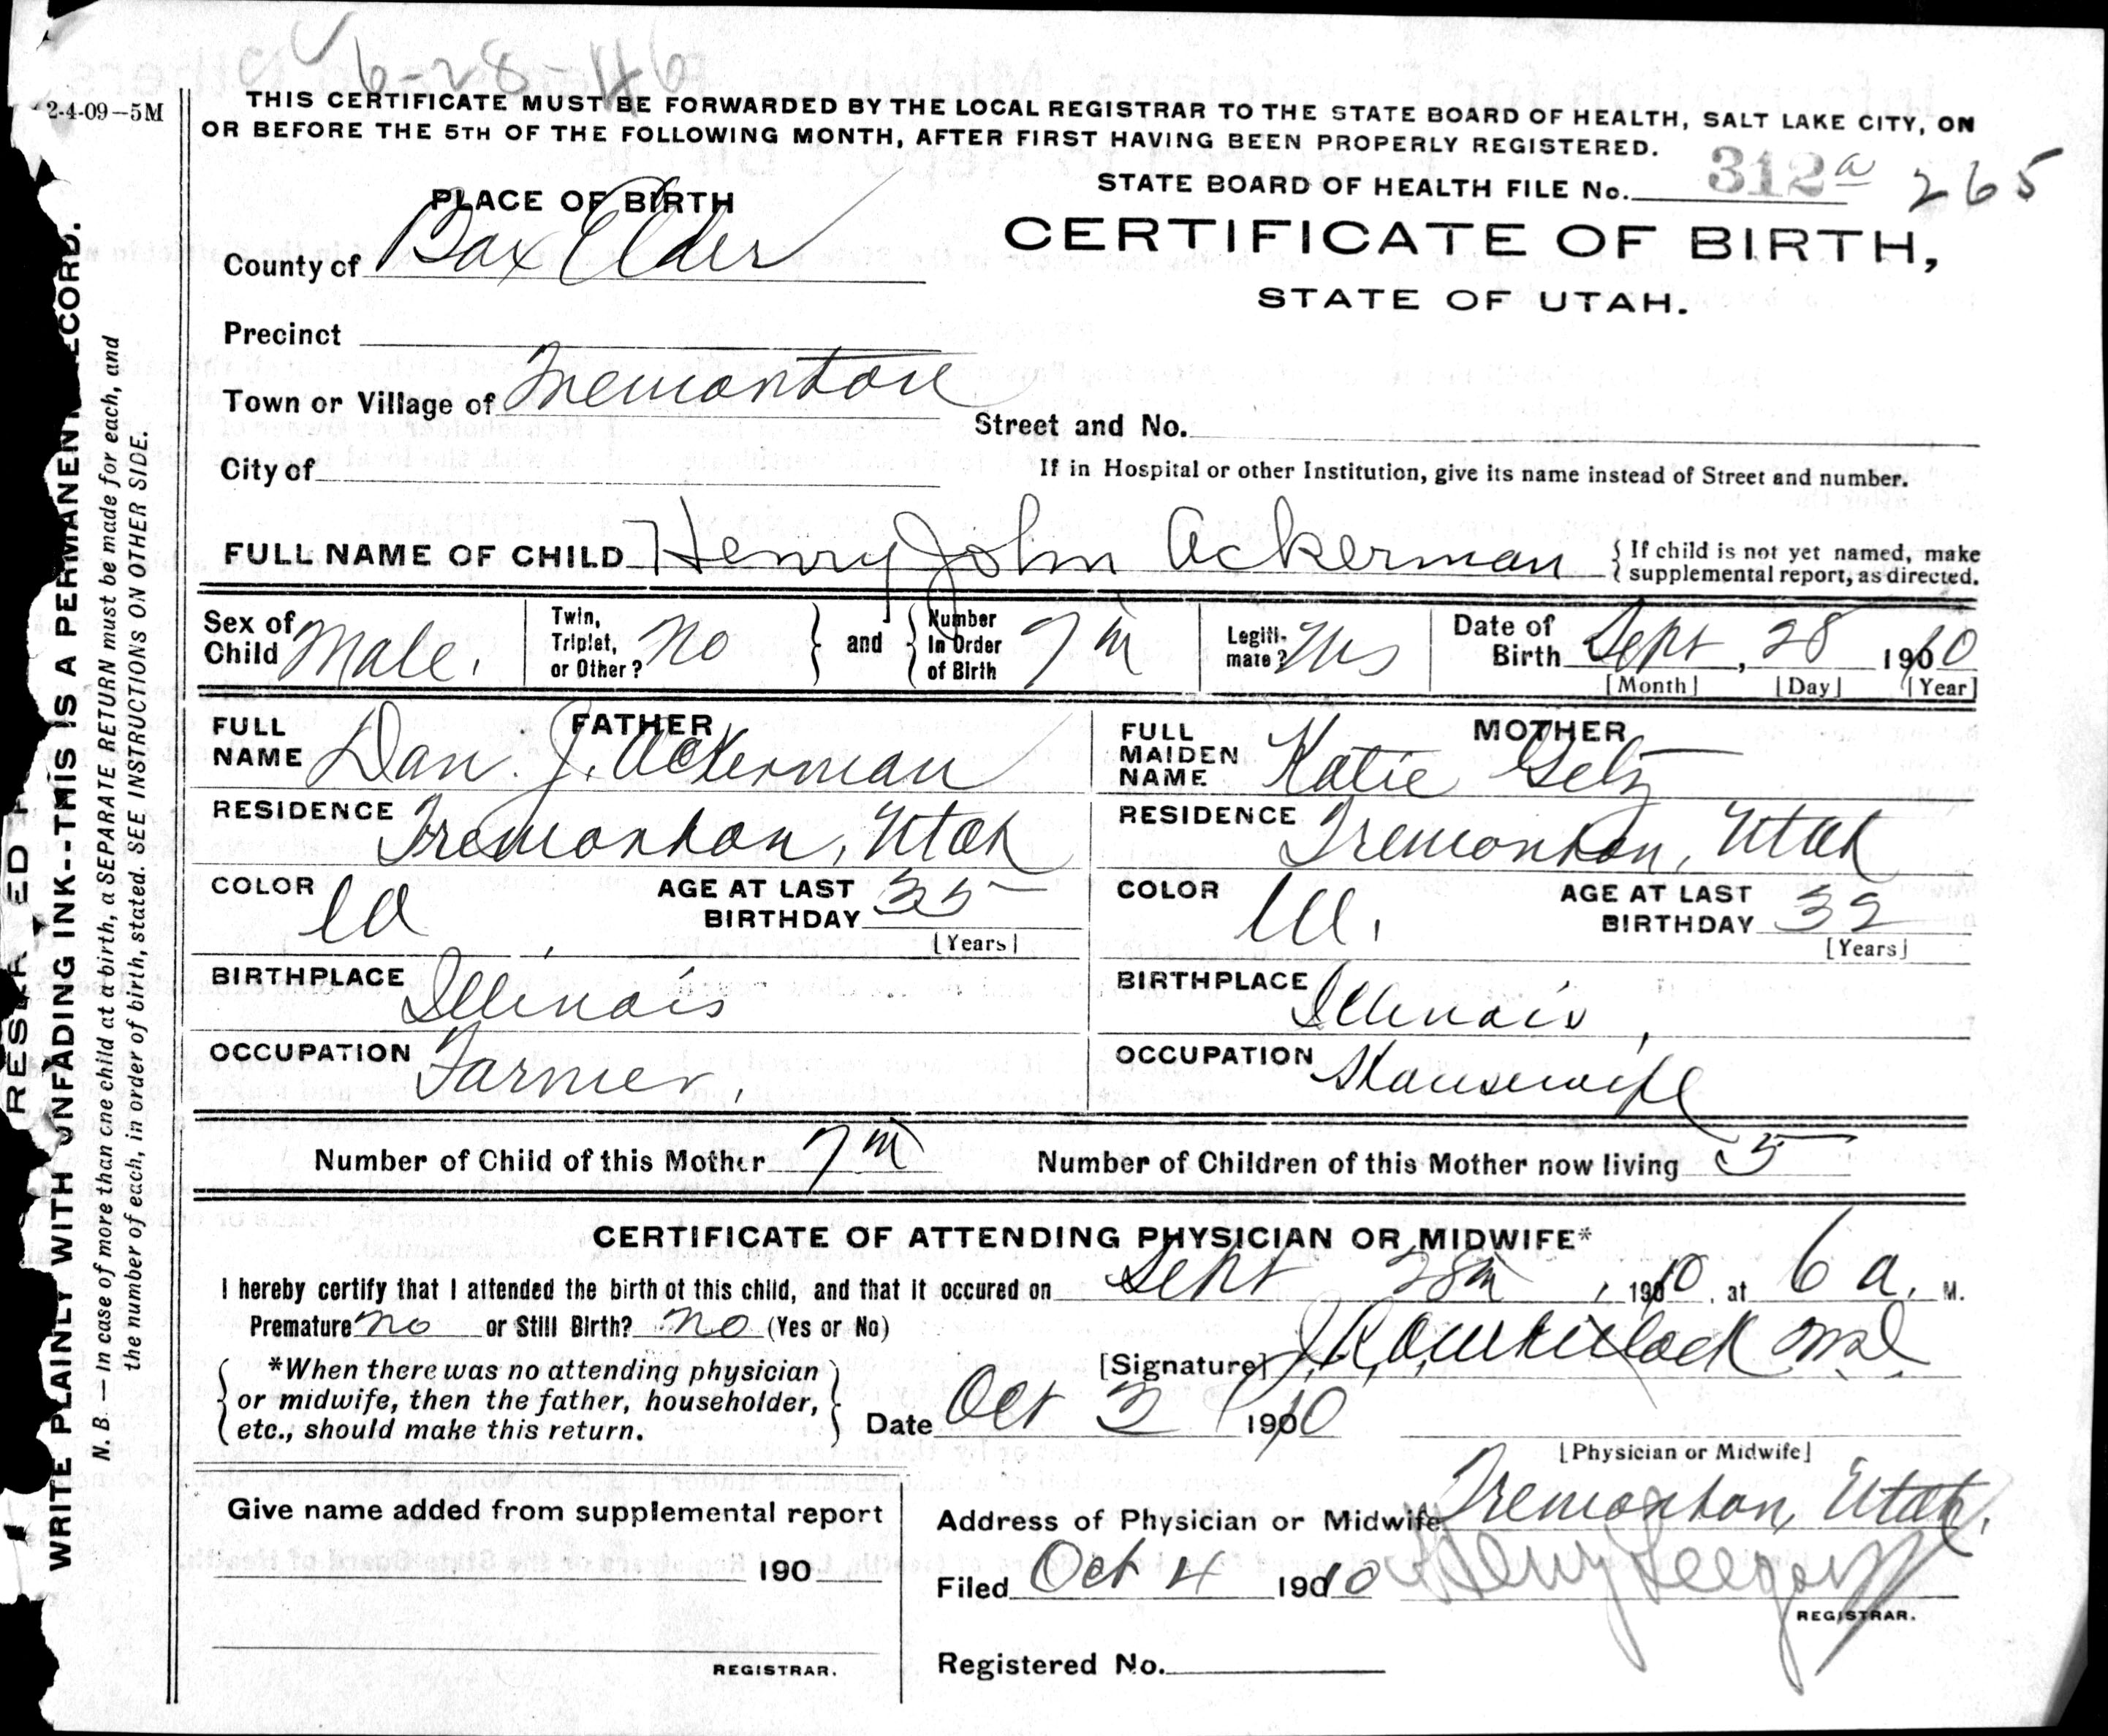 6-28-46
2-4-09-5M
THIS CERTIFICATE MUST BE FORWARDED BY THE LOCAL REGISTRAR TO THE STATE BOARD OF HEALTH, SALT LAKE CITY, ON
OR BEFORE THE 5TH OF THE FOLLOWING MONTH, AFTER FIRST HAVING BEEN PROPERLY REGISTERED.
STATE BOARD OF HEALTH FILE No. 312 a 265
PLACE OF BIRTH
CERTIFICATE OF BIRTH,
STATE OF UTAH.
County of Box Elder
Precinct
Town or Village of Tremonton
Street and No.
City of
If in Hospital or other Institution, give its name instead of Street and number.
FULL NAME OF CHILD Henry John Ackerman { If child is not yet named, make
supplemental report, as directed.
Sex of Child Male. Twin, Triplet, or Other? No } and { Number In Order of Birth 7th Legiti- mate? Yes Date of Birth Sept, 28 1910
[Month] [Day] [Year]
FATHER
FULL NAME Dan. J. Ackerman
RESIDENCE Tremonton, Utah
COLOR W AGE AT LAST BIRTHDAY 35
[Years]
BIRTHPLACE Illinois
OCCUPATION Farmer,
MOTHER
FULL MAIDEN NAME Katie Getz
RESIDENCE Tremonton, Utah
COLOR W. AGE AT LAST BIRTHDAY 32
[Years]
BIRTHPLACE Illinois,
OCCUPATION Housewife
Number of Child of this Mother 7th Number of Children of this Mother now living 5
CERTIFICATE OF ATTENDING PHYSICIAN OR MIDWIFE*
I hereby certify that I attended the birth of this child, and that it occured on Sept 28th, 1910, at 6 a. M.
Premature no or Still Birth? no (Yes or No)
[Signature] M.D.
*When there was no attending physician
or midwife, then the father, householder,
etc., should make this return.
Date Oct 3 1910
[Physician or Midwife]
Give name added from supplemental report
190
REGISTRAR.
Address of Physician or Midwife Tremonton, Utah,
Filed Oct 4 1910 Henry
REGISTRAR.
Registered No.
WRITE PLAINLY WITH UNFADING INK--THIS IS A PERMANENT RECORD.
N. B. — In case of more than one child at a birth, a SEPARATE RETURN must be made for each, and
the number of each, in order of birth, stated. SEE INSTRUCTIONS ON OTHER SIDE.